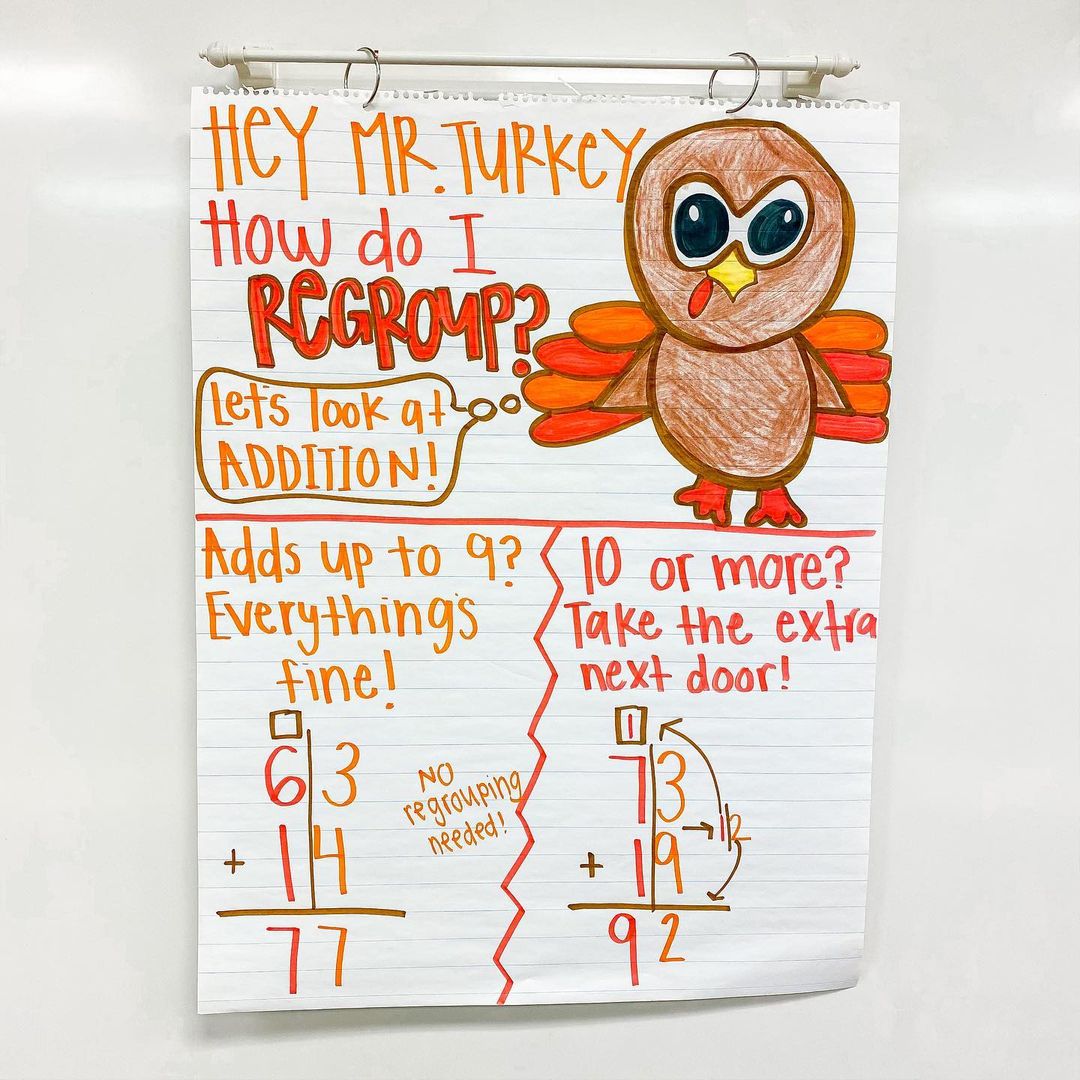 HEY MR. TURKEY
How do I
REGROUP?
Let's look at
ADDITION!
Adds up to 9?
Everything's
fine!
6 3
+ 1 4
7 7
NO
regrouping
needed!
10 or more?
Take the extra
next door!
1
7 3
→ 1|2
+ 1 9
9 2